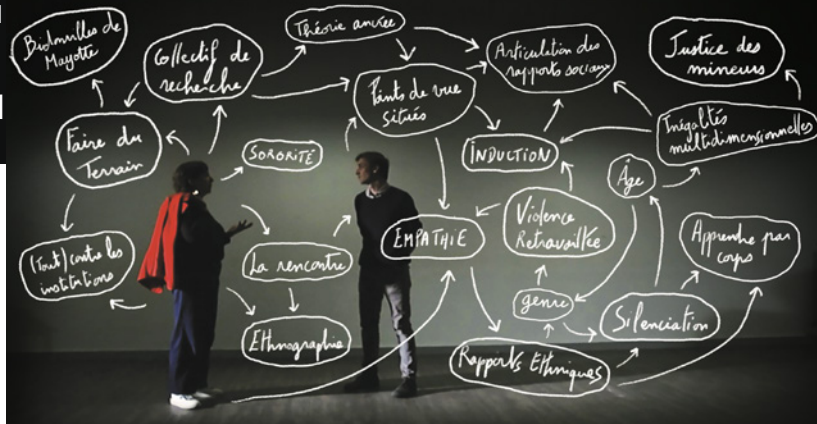 Bidonvilles de
Mayotte
Collectif de
recherche
Théorie ancrée
Articulation des
rapports sociaux
Justice des
mineurs
Faire du
Terrain
Points de vue
situés
Inégalités
multidimensionnelles
SORORITÉ
INDUCTION
Âge
(Tout) contre les
institutions
La rencontre
EMPATHIE
Violence
Retravaillée
Apprendre par
corps
genre
Silenciation
Ethnographie
Rapports Ethniques